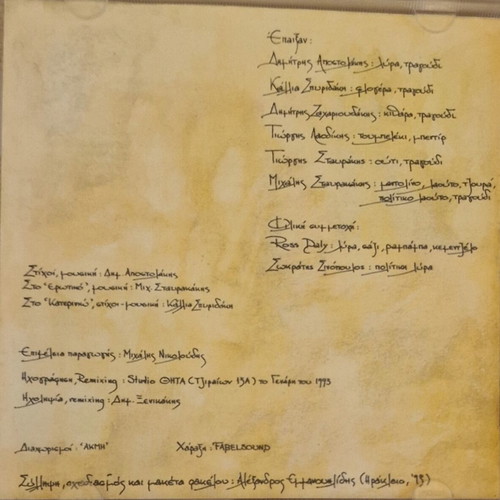 Έπαιξαν:
Δημήτρης Αποστολάκης: λύρα, τραγούδι
Κάλλια Σπυριδάκη: φλογέρα, τραγούδι
Δημήτρης Ζαχαριουδάκης: κιθάρα, τραγούδι
Γιώργης Λαοδίκης: τουμπελέκι, μπεντίρ
Γιώργης Σταυράκης: ούτι, τραγούδι
Μιχάλης Σταυρακάκης: μαντολίνο, λαούτο, τζουρά,
πολίτικο λαούτο, τραγούδι
Φιλική συμμετοχή:
Ross Daly: λύρα, σάζι, ραμπάμπα, κεμεντζέ
Σωκράτης Σινόπουλος: πολίτικη λύρα
Στίχοι, μουσική: Δημ. Αποστολάκης
Στο "Ερωτικό", μουσική: Μιχ. Σταυρακάκης
Στο "Κατερινιώ", στίχοι-μουσική: Κάλλια Σπυριδάκη
Επιμέλεια παραγωγής: Μιχάλης Νικολούδης
Ηχογράφηση, Remixing: Studio ΘΗΤΑ (Τζιραίων 13Α) το Γενάρη του 1993
Ηχοληψία, remixing: Δημ. Ξενικάκης
Διαχωρισμοί: "ΑΚΜΗ" Χάραξη: FABELSOUND
Σύλληψη, σχεδιασμός και μακέτα φακέλου: Αλέξανδρος Εμμανουηλίδης (Ηράκλειο, '93)